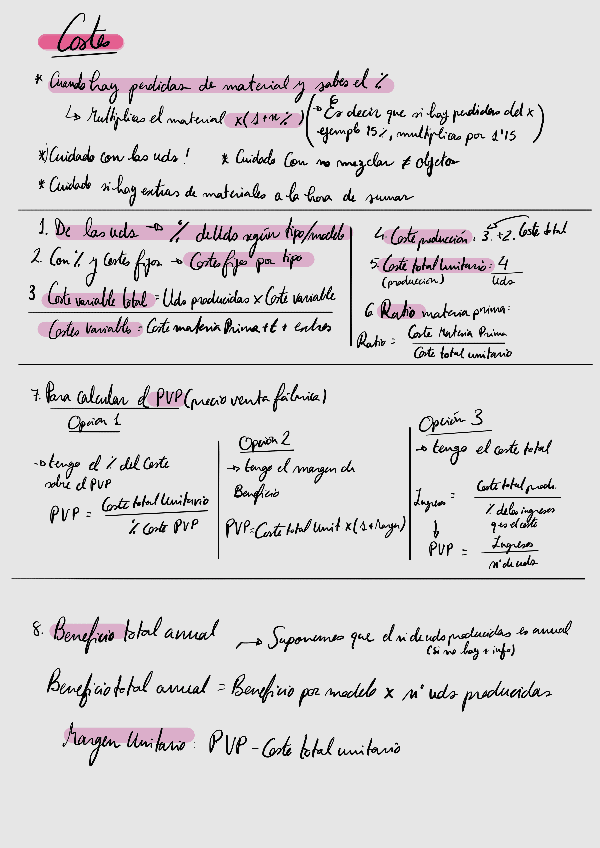 Costes
* Cuando hay perdidas de material y sabes el %
↳ Multiplicas el material x(1+n%) (→ Es decir que si hay perdidas del x
ejemplo 15%, multiplicas por 1'15)
* Cuidado con las uds! * Cuidado con no mezclar ≠ objetos
* Cuidado si hay extras de materiales a la hora de sumar
1. De las uds → % de Uds según tipo/modelo
2. Con % y costes fijos → Costes fijos por tipo
3 Coste variable total = Uds producidas x Coste variable
Costes Variable = Coste materia Prima + t + extras
4. Coste producción: 3. + 2. Coste total
5. Coste total unitario: 4
(produccion) Uds
6. Ratio materia prima:
Ratio = Coste Materia Prima
Coste total unitario
7. Para calcular el PVP (precio venta fábrica)
Opcion 1
→ tengo el % del Coste
sobre el PVP
PVP = Coste total Unitario
% Coste PVP
Opción 2
→ tengo el margen de
Beneficio
PVP = Coste total Unit x (1 + Margen)
Opción 3
→ tengo el coste total
Ingresos = Coste total produ.
% de los ingresos
q es el coste
↓
PVP = Ingresos
nº de uds
8. Beneficio total anual → Suponemos que el n de uds producidas es anual
(si no hay + info)
Beneficio total anual = Beneficio por modelo x nº uds producidas
Margen Unitario: PVP - Coste total unitario